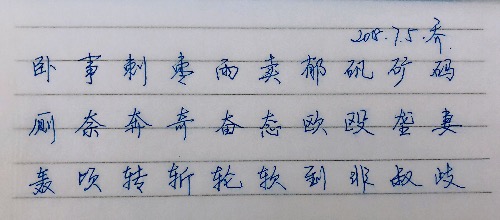 2018.7.5.乔
卧 事 刺 枣 雨 卖 郁 矾 矿 码
厕 奈 奔 奇 奋 态 欧 殴 垄 妻
轰 顷 转 斩 轮 软 到 非 叔 歧